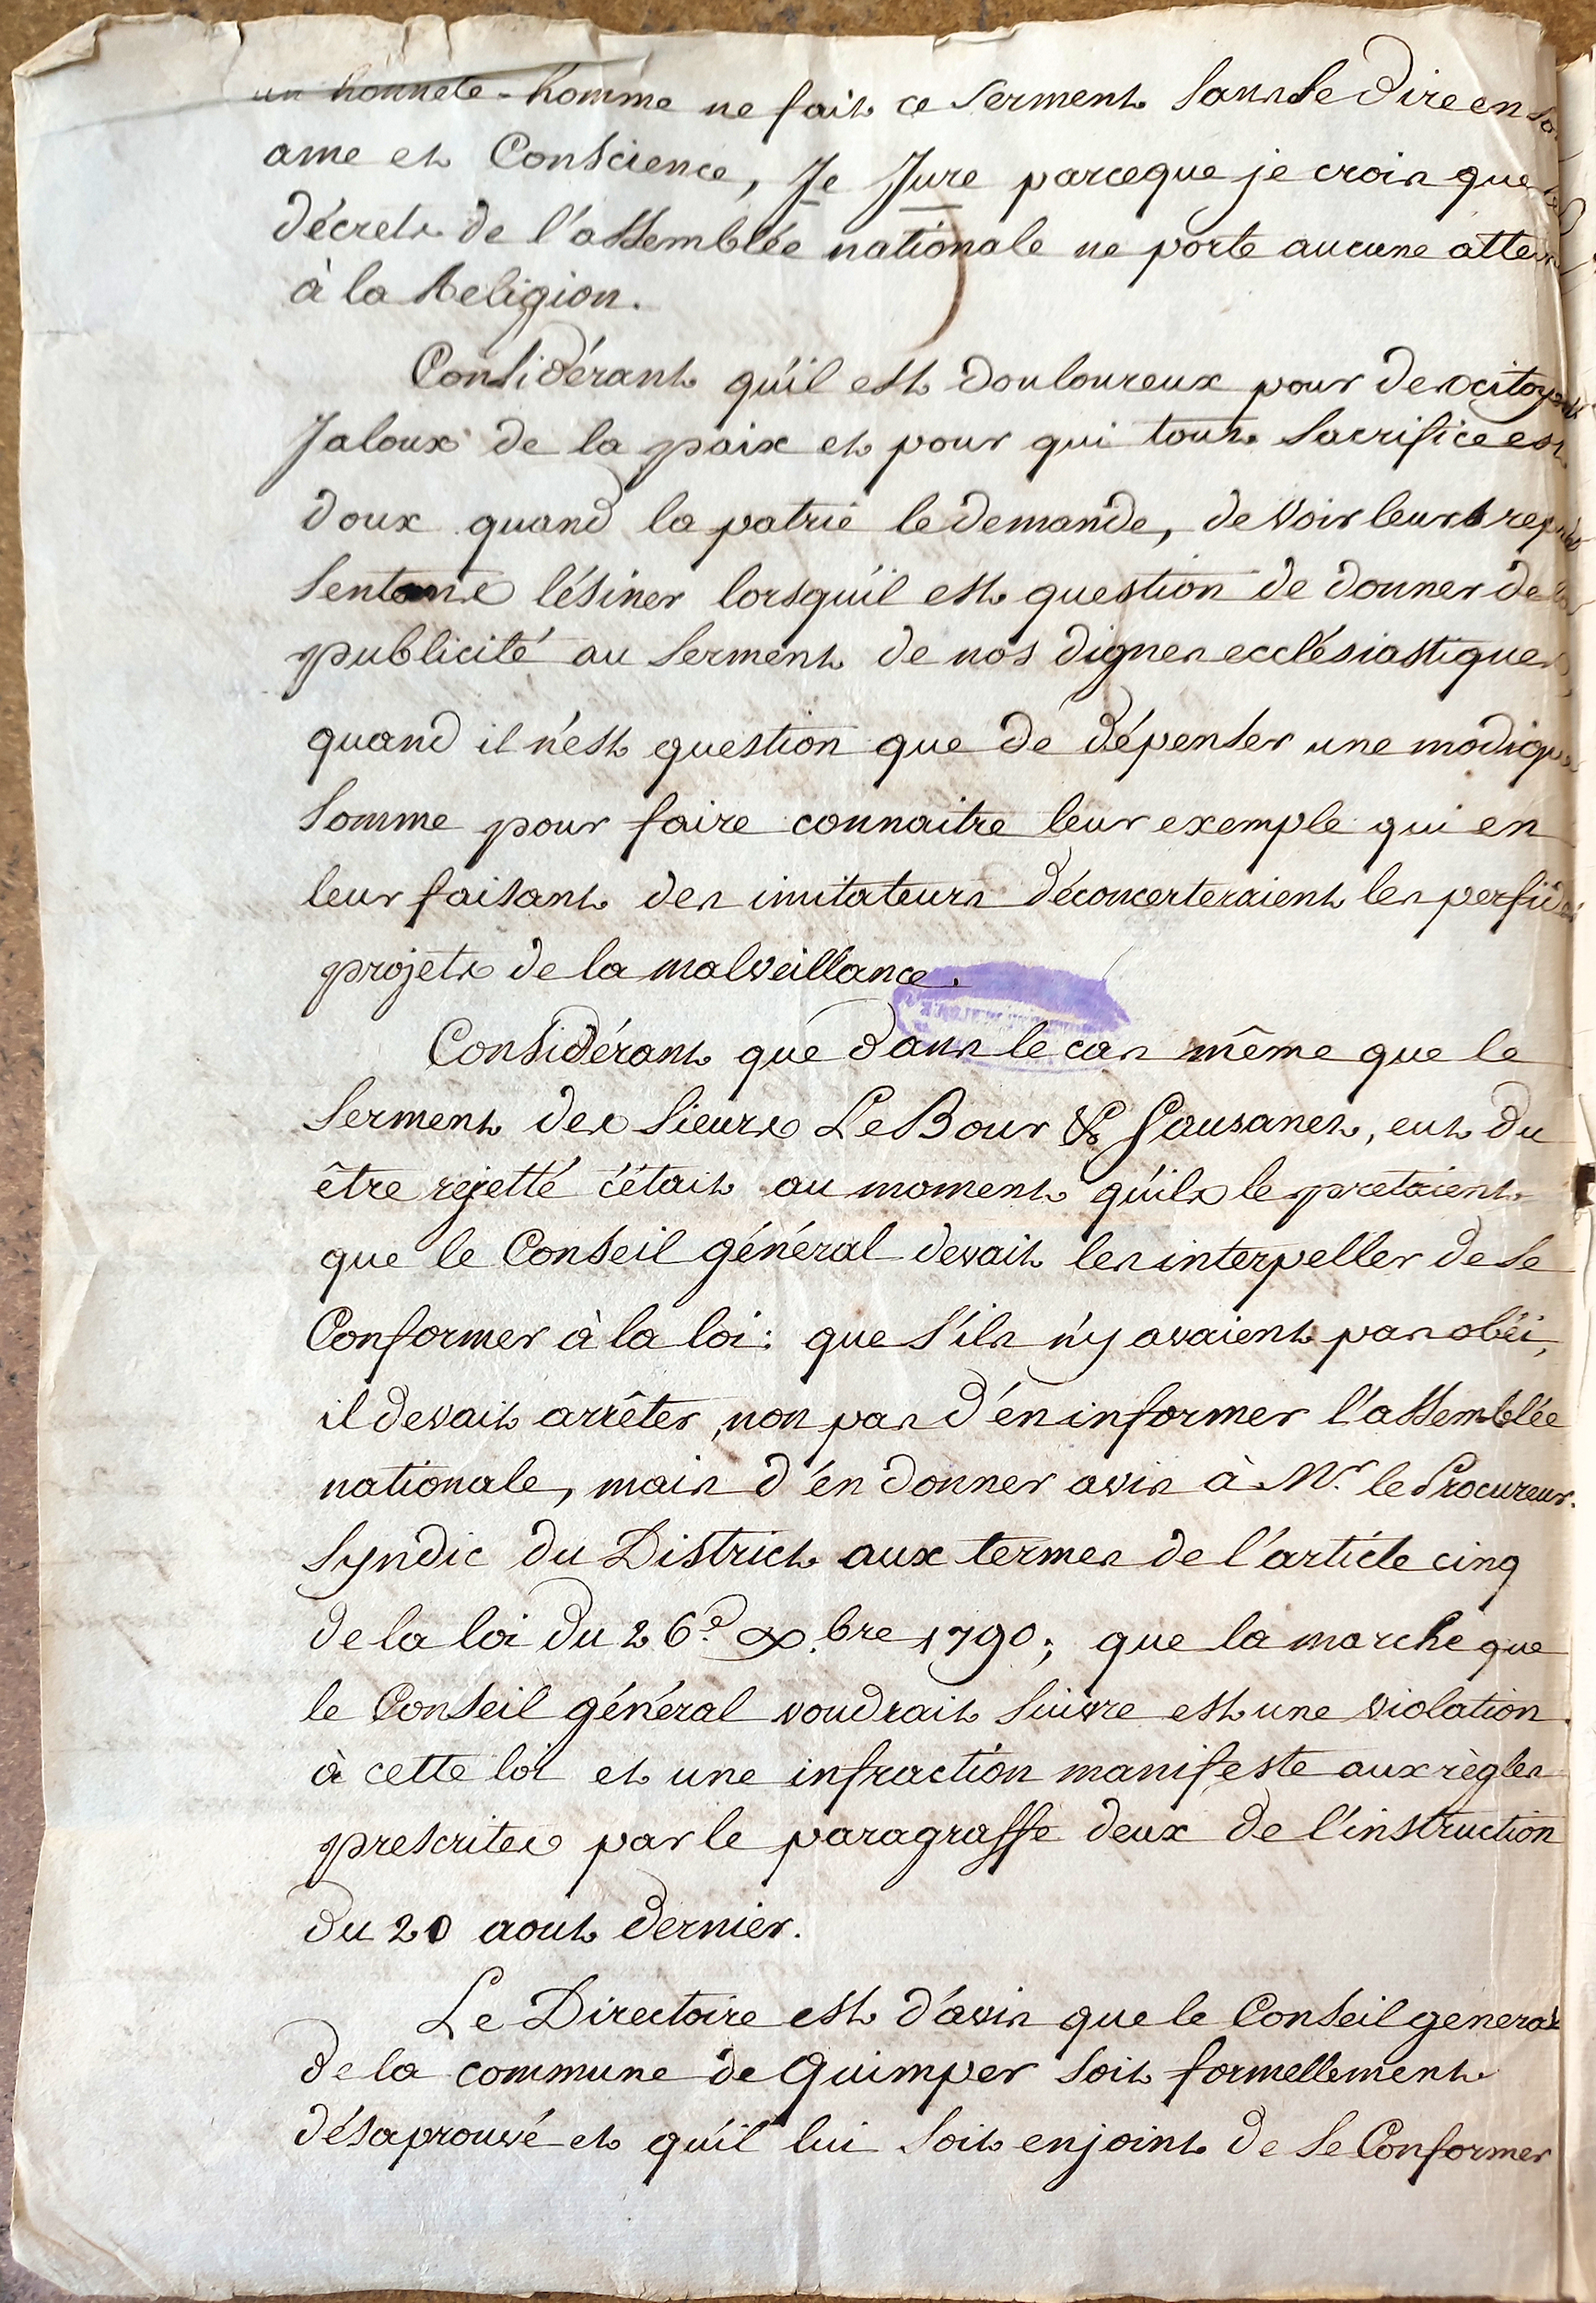 un honnete-homme ne fait ce serment sans se dire en
ame et Conscience, Je Jure parceque je crois que
décrets de l'assemblée nationale ne porte aucune
à la Religion.
Considérant qu'il est douloureux pour des citoyens
Jaloux de la paix et pour qui tout sacrifice est
doux quand la patrie le demande, de voir leurs repré
sentans lésiner lorsqu'il est question de donner de la
publicité au serment de nos dignes ecclésiastiques
quand il n'est question que de dépenser une modique
somme pour faire connaitre leur exemple qui en
leur faisant des imitateurs déconcerteraient les perfides
projets de la malveillance.
Considérant que dans le cas même que le
serment des sieurs Le Bour & Gausanet, eut du
être rejetté c'était au moment qu'ils le pretaient
que le Conseil général devait les interpeller de se
Conformer à la loi: que s'ils n'y avaient pas obéi,
il devait arrêter, non pas d'én informer l'assemblée
nationale, mais d'én donner avis à Mr. le Procureur.
Syndic du District aux termes de l'article cinq
de la loi du 26e. Xbre 1790; que la marche que
le Conseil général voudrait suivre est une violation
à cette loi et une infraction manifeste aux règles
prescrites par le paragraffe deux de l'instruction
du 20 aout dernier.
Le Directoire est d'avis que le Conseil general
de la commune de Quimper soit formellement
désaprouvé et qu'il lui soit enjoint de se Conformer